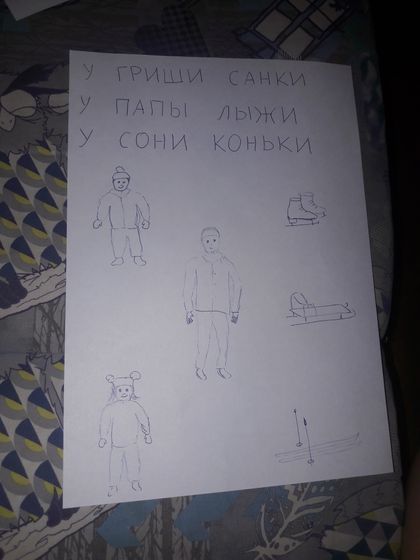 У ГРИШИ САНКИ
У ПАПЫ ЛЫЖИ
У СОНИ КОНЬКИ